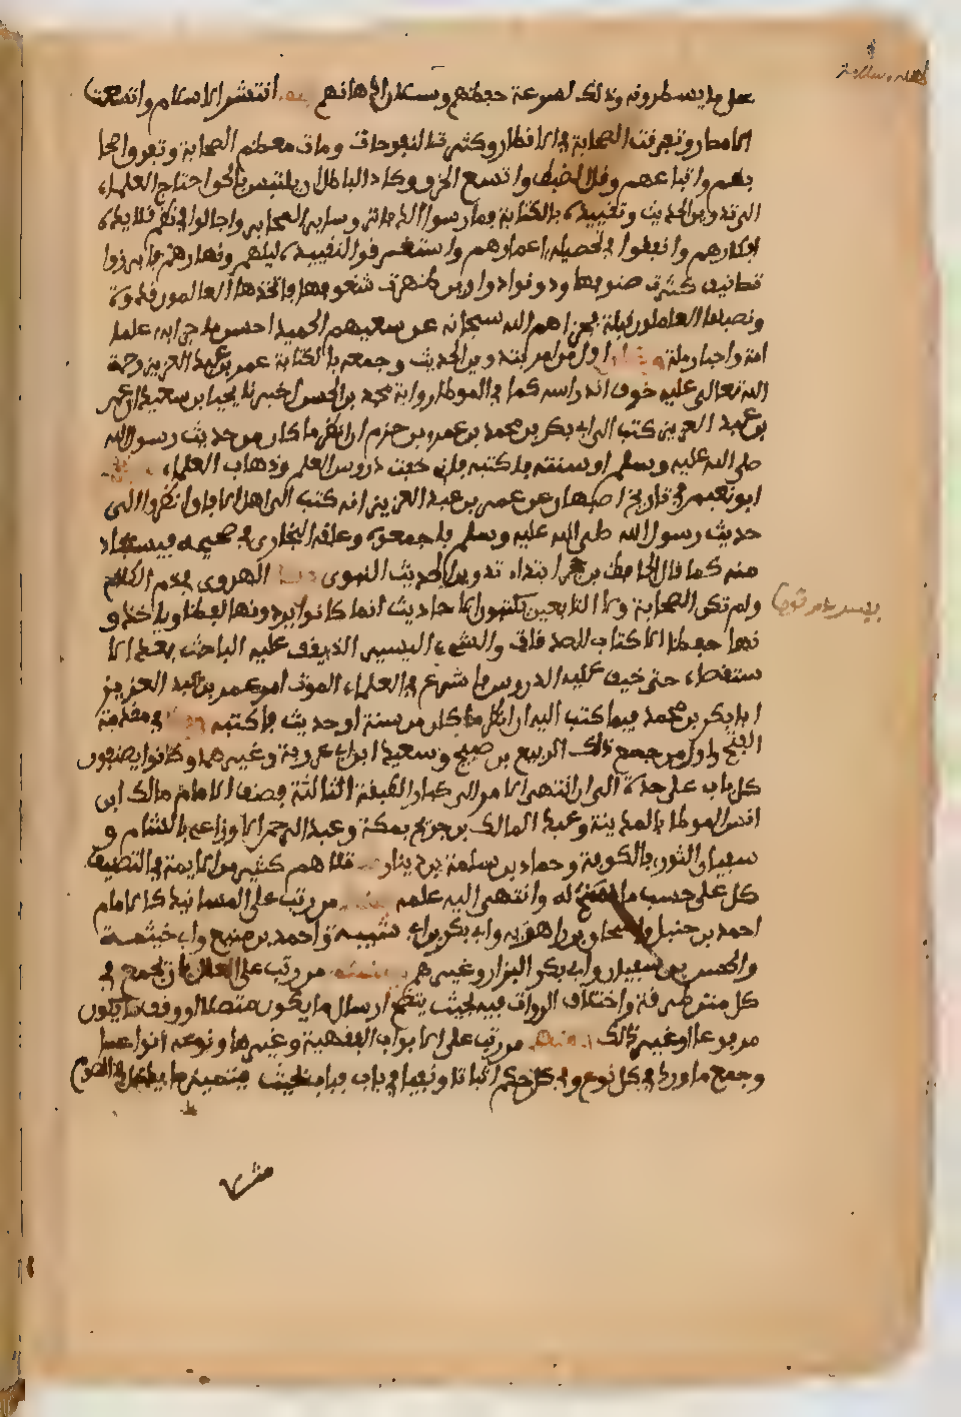 انتشر الاسلام واتسعت
الامصار وتفرقت الصحابة في الاقطار وكثرت الفتوحات ومات معظم الصحابة وتفرق اصحا
بهم واتباعهم وقل الضبط واتسع الخرق وكاد الباطل ان يلتبس بالحق احتاج العلماء
الى تدوين الحديث وتقييده بالكتابة
افكارهم وانفقوا في تحصيله اعمارهم واستغرقوا لتقييده ليلهم ونهارهم فابرزوا
تصانيف كثرت صنوفها ودونوا دواوين ظهرت شفوفها فاتخذها العالمون قدوة
ونصبها العاملون قبلة فجزاهم الله سبحانه عن سعيهم الحميد احسن ما جزى به علماء
امة واحبار ملة اول من امر بتدوين الحديث وجمعه بالكتابة عمر بن عبد العزيز رحمة
الله تعالى عليه خوف اندراسه كما في الموطا رواية محمد بن الحسن اخبرنا يحيا بن سعيد ان عمر
بن عبد العزيز كتب الى ابي بكر بن محمد بن عمرو بن حزم ان انظر ما كان من حديث رسول الله
صلى الله عليه وسلم او سنته فاكتبه فاني خفت دروس العلم وذهاب العلماء
ابو نعيم في تاريخ اصبهان عن عمر بن عبد العزيز انه كتب الى اهل الافاق انظروا الى
حديث رسول الله صلى الله عليه وسلم فاجمعوه وعلقه البخاري في صحيحه فيستفاد
منه كما قال الحافظ بن حجر ابتداء تدوين الحديث النبوي الهروي في ذم الكلام
ولم تكن الصحابة ولا التابعين يكتبون الاحاديث انما كانوا يؤدونها لفظا وياخذو
نها حفظا الا كتاب الصدقات والشيء اليسير الذي يقف عليه الباحث بعد الا
ستقصاء حتى خيف عليه الدروس واسرع في العلماء الموت امر عمر بن عبد العزيز
ابا بكر بن محمد فيما كتب اليه ان انظر ما كان من سنة او حديث فاكتبه في مقدمة
الفتح واول من جمع ذلك الربيع بن صبيح وسعيد ابن ابي عروبة وغيرهما وكانوا يصنفون
كل باب على حدة الى ان انتهى الامر الى كبار الطبقة الثالثة فصنف الامام مالك ابن
انس الموطا بالمدينة وعبد المالك بن جريج بمكة وعبد الرحمن الاوزاعي بالشام و
سفيان الثوري بالكوفة وحماد بن سلمة بن دينار تلاهم كثير من الايمة في التصنيف
كل على حسب ما سنح له وانتهى اليه علمه من رتب على المسانيد كالامام
احمد بن حنبل واسحاق بن راهويه وابي بكر بن ابي شيبة واحمد بن منيع وابي خيثمة
والحسن بن سفيان وابي بكر البزار وغيرهم من رتب على العلل بان يجمع في
كل متن طرقه واختلاف الرواة فيه بحيث يتضح ارسال ما يكون متصلا او وقف ما يكون
مرفوعا او غير ذلك من رتب على الابواب الفقهية وغيرها ونوعه انواعا
وجمع ما ورد في كل نوع وفي كل حكم اثباتا ونفيا في باب فباب بحيث يتميز ما يدخل في الصوم